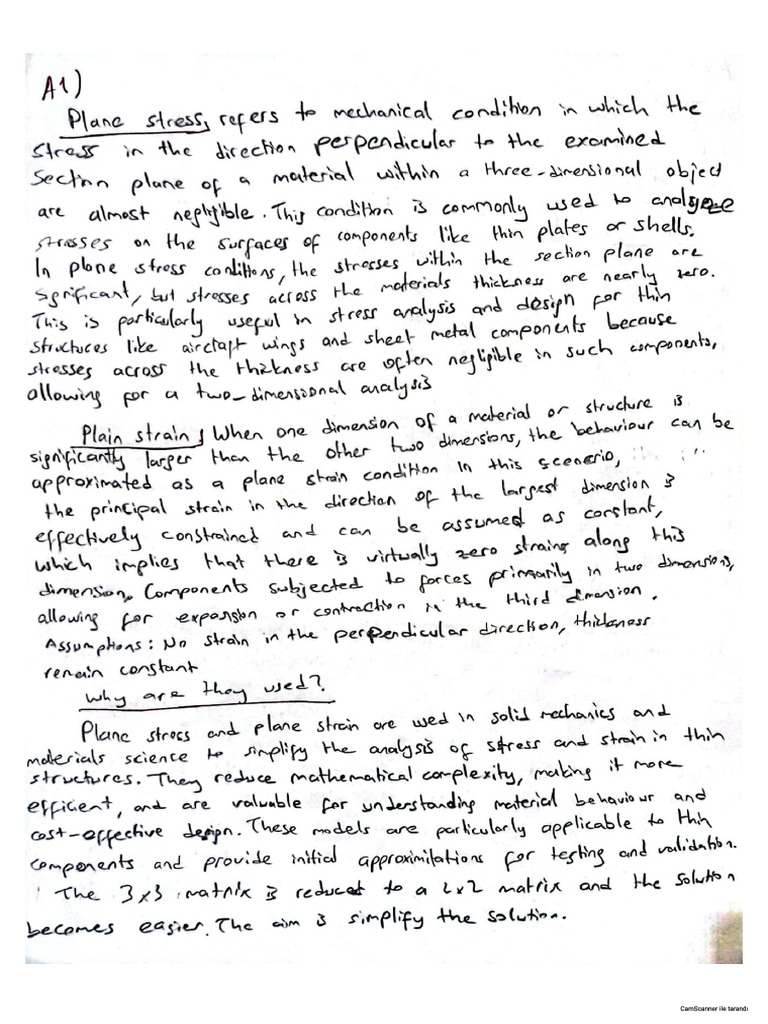 A1)
Plane stress, refers to mechanical condition in which the
stress in the direction perpendicular to the examined
section plane of a material within a three-dimensional object
are almost negligible. This condition is commonly used to analyze
stresses on the surfaces of components like thin plates or shells.
In plane stress conditions, the stresses within the section plane are
significant, but stresses across the materials thickness are nearly zero.
This is particularly useful in stress analysis and design for thin
structures like aircraft wings and sheet metal components because
stresses across the thickness are often negligible in such components,
allowing for a two-dimensional analysis
Plain strain; When one dimension of a material or structure is
significantly larger than the other two dimensions, the behaviour can be
approximated as a plane strain condition In this scenerio,
the principal strain in the direction of the largest dimension is
effectively constrained and can be assumed as constant,
which implies that there is virtually zero strains along this
dimension. Components subjected to forces primarily in two dimensions,
allowing for expansion or contraction in the third dimension.
Assumptions: No strain in the perpendicular direction, thickness
remain constant
Why are they used?
Plane stress and plane strain are used in solid mechanics and
materials science to simplify the analysis of stress and strain in thin
structures. They reduce mathematical complexity, making it more
efficient, and are valuable for understanding material behaviour and
cost-effective design. These models are particularly applicable to thin
components and provide initial approximilations for testing and validation.
The 3x3 matrix is reduced to a 2x2 matrix and the solution
becomes easier. The aim is simplify the solution.
CamScanner ile tarandı